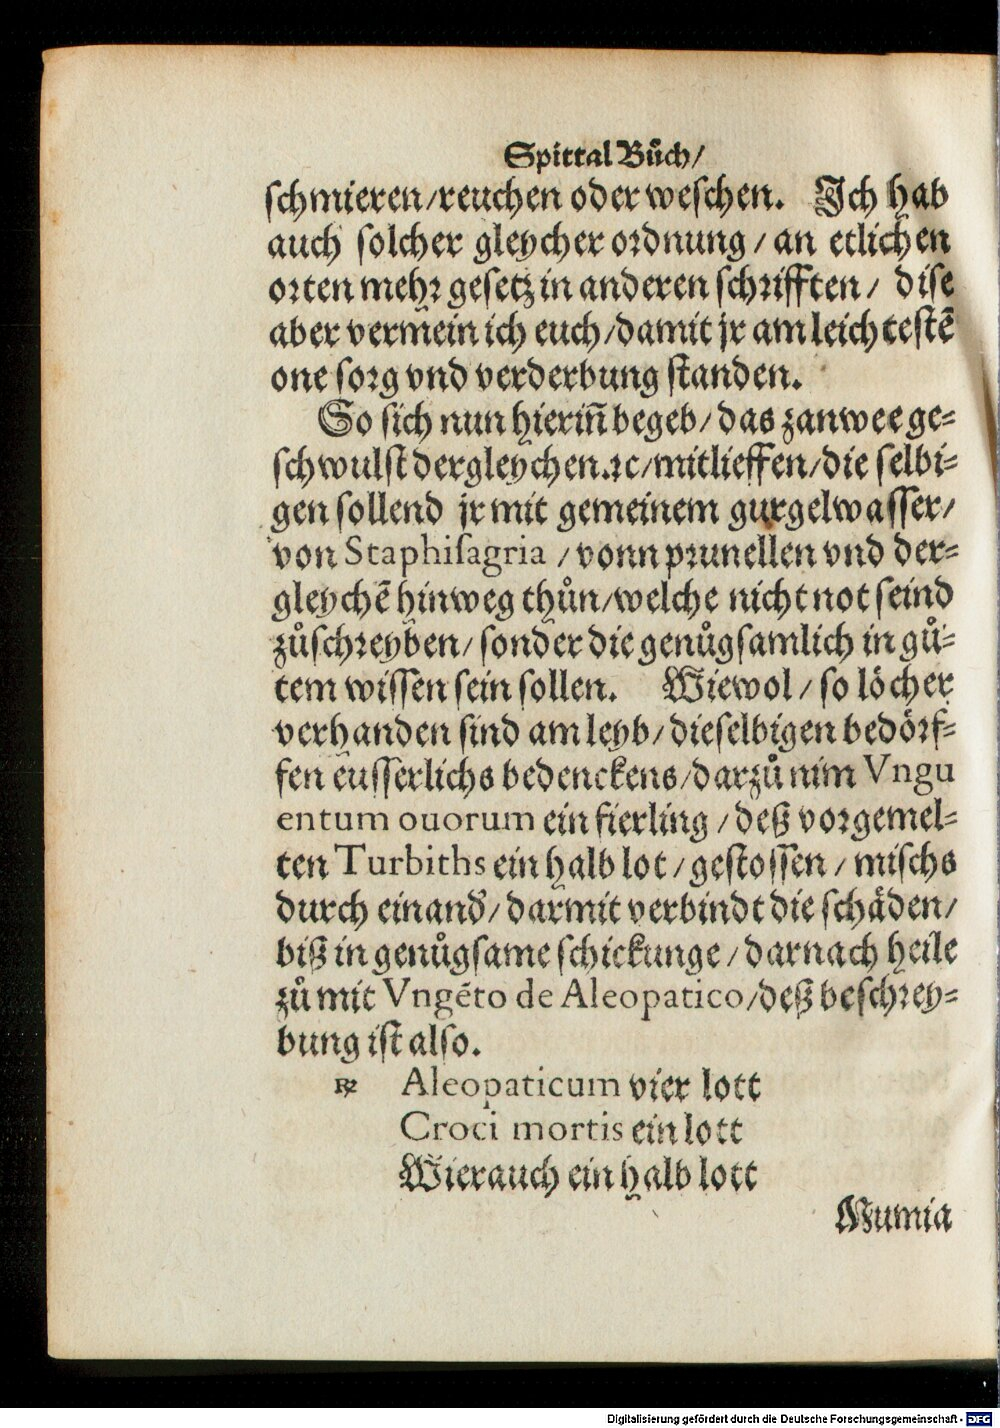 Spittal Bůch/
schmieren/reuchen oder weschen. Ich hab
auch solcher gleycher ordnung / an etlichen
orten mehr gesetz in anderen schrifften / dise
aber vermein ich euch/damit jr am leichtestē
one sorg vnd verderbung standen.
So sich nun hieriñ begeb/das zanwee ge⸗
schwulst dergleychen.ꝛc/mitlieffen/die selbi⸗
gen sollend jr mit gemeinem gurgelwasser/
von Staphiſagria /vonn prunellen vnd der⸗
gleychē hinweg thůn/welche nicht not seind
zůschreyben/sonder die genůgsamlich in gů⸗
tem wissen sein sollen. Wiewol / so löcher
verhanden sind am leyb/dieselbigen bedörf⸗
fen eusserlichs bedenckens/darzů nim Vngu
entum ouorum ein fierling /deß vorgemel⸗
ten Turbiths ein halb lot /gestossen / mischs
durch einand̛/darmit verbindt die schäden/
biß in genůgsame schickunge /darnach heile
zů mit Vngēto de Aleopatico/deß beschrey⸗
bung ist also.
℞ Aleopaticum vier lott
Croci mortis ein lott
Wierauch ein halb lott
Mumia
Digitalisierung gefördert durch die Deutsche Forschungsgemeinschaft - DFG